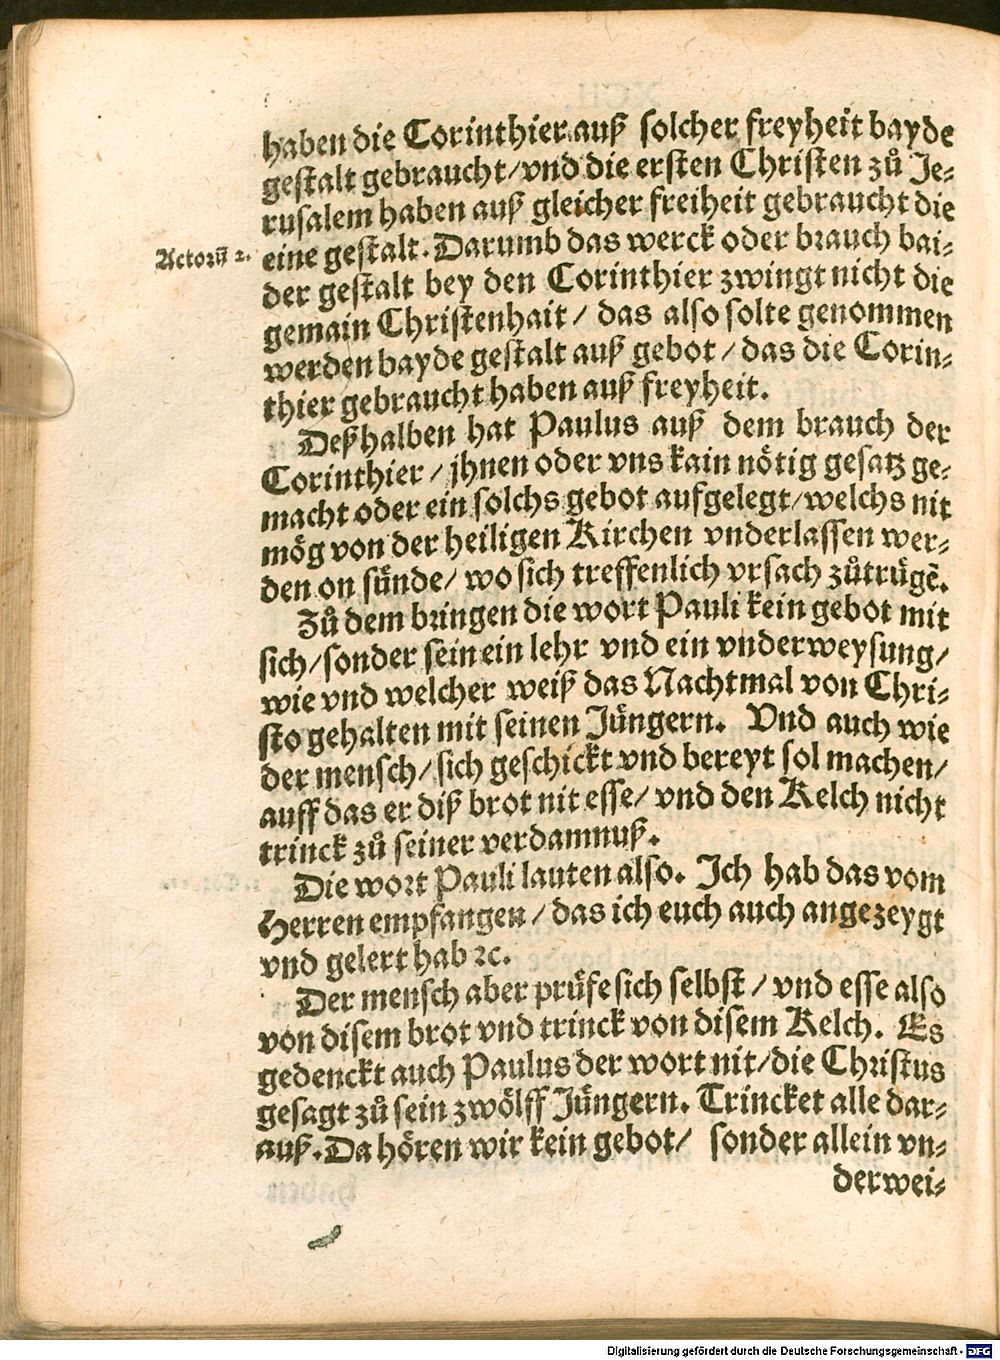 haben die Corinthier auß solcher freyheit bayde
gestalt gebraucht/vnd die ersten Christen zů Je⸗
rusalem haben auß gleicher freiheit gebraucht die
Actorũ 2. eine gestalt. Darumb das werck oder brauch bai⸗
der gestalt bey den Corinthier zwingt nicht die
gemain Christenhait/ das also solte genommen
werden bayde gestalt auß gebot/das die Corin⸗
thier gebraucht haben auß freyheit.
Deßhalben hat Paulus auß dem brauch der
Corinthier/jhnen oder vns kain nötig gesatz ge⸗
macht oder ein solchs gebot aufgelegt/welchs nit
mög von der heiligen Kirchen vnderlassen wer⸗
den on sünde/ wo sich treffenlich vrsach zůtrügẽ.
Zů dem bringen die wort Pauli kein gebot mit
sich/sonder sein ein lehr vnd ein vnderweysung/
wie vnd welcher weiß das Nachtmal von Chri⸗
sto gehalten mit seinen Jüngern. Vnd auch wie
der mensch/sich geschickt vnd bereyt sol machen/
auff das er diß brot nit esse/ vnd den Kelch nicht
trinck zů seiner verdamnuß.
Die wort Pauli lauten also. Ich hab das vom
Herren empfangen/das ich euch auch angezeygt
vnd gelert hab ꝛc.
Der mensch aber prüfe sich selbst/vnd esse also
von disem brot vnd trinck von disem Kelch. Es
gedenckt auch Paulus der wort nit/die Christus
gesagt zů sein zwölff Jüngern. Trincket alle dar⸗
auß. Da hören wir kein gebot/ sonder allein vn⸗
derwei⸗
Digitalisierung gefördert durch die Deutsche Forschungsgemeinschaft - DFG